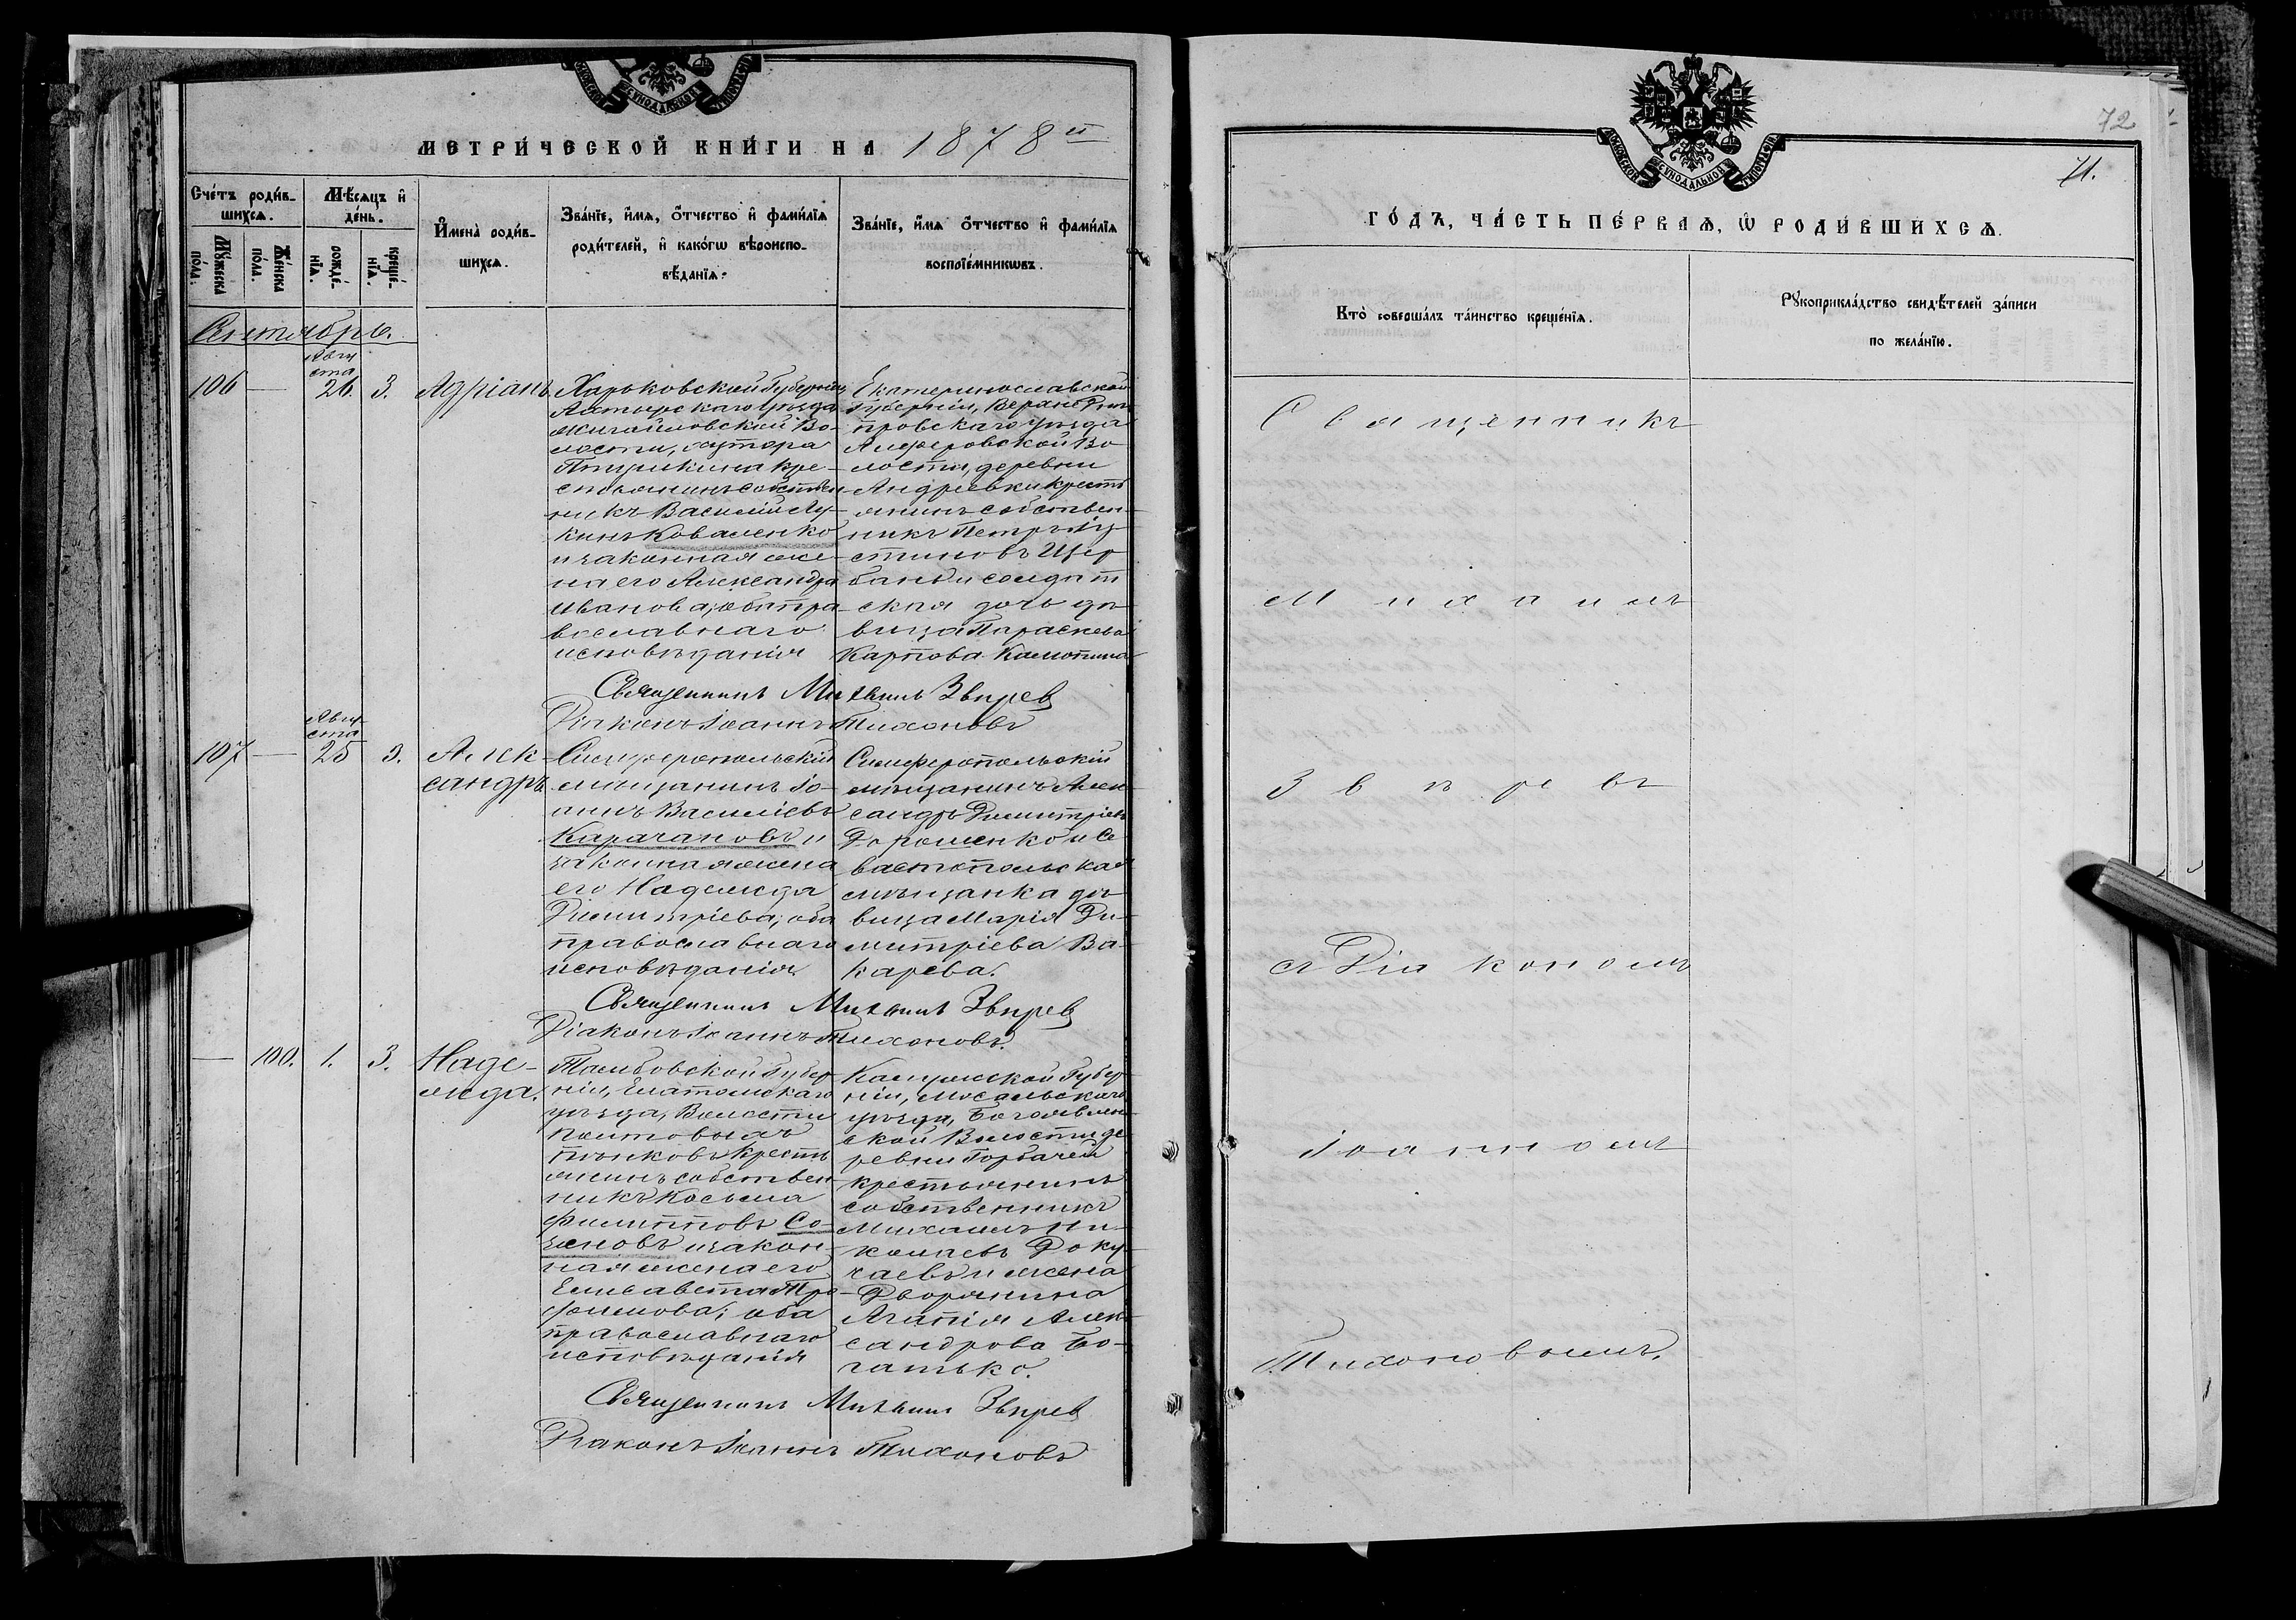 МЕТРИЧЕСКОЙ КНИГИ НА 1878й
Счетъ родив-
шихся.
Мѣсяцъ и
день.
Имена родив-
шихся.
Званіе, имя, отчество и фамилія
родителей, и какогω вѣроиспо-
вѣданія.
Званіе, имя отчество и фамилія
воспріемникωвъ.
Мужеска
пола.
Женска
пола.
рожде-
нія.
креще-
нія.
Сентябрь.
Авгу
ста
106 — 26. 3. Адріанъ
Харьковской Губерніи
Ахтырскаго уѣзда
Михайловской Во-
лости, хутора
кре-
стьянинъ собствен-
никъ Василій Лу-
кинъ Коваленко
и законная же-
на его Александра
Иванова; оба пра-
вославнаго
исповѣданія
Екатеринославской
Губерніи, Верхнеднѣ-
провскаго уѣзда
Алферовской Во-
лости, деревни
Андреевки кресть
янинъ собствен-
никъ Петръ Іу-
стиновъ Щер
бань и солдат
ская дочь дѣ-
вица Параскева
Карпова
Священникъ Михаилъ Звѣрев
Діаконъ Іоаннъ Тихоновъ
Авгу
ста
107 — 25 3. Алек-
сандръ
Симферопольскій
мѣщанинъ Іо-
аннъ Василіевъ
Карачановъ и
законная жена
его Надежда
Димитріева; оба
православнаго
исповѣданія
Симферопольскій
мѣщанинъ Алек-
сандръ Димитріевъ
Дорошенко и Се-
вастопольская
мѣщанка дѣ-
вица Марія Ди-
митріева Ва-
карева.
Священникъ Михаилъ Звѣрев
Діаконъ Іоаннъ Тихоновъ.
— 100. 1. 3. Наде-
жда.
Тамбовской Губер-
ніи, Елатомскаго
уѣзда, Волости
крестъ
янинъ собствен-
никъ Косьма
Филипповъ Со-
зоновъ и закон-
ная жена его
Елисавета Тро-
фимова; оба
православнаго
исповѣданія
Калужской Губер-
ніи, Мосальскаго
уѣзда, Богоявлен-
ской Волости де-
ревни Горбачей
крестьянинъ
собственникъ
Михаилъ Ни-
колаевъ Доку-
чаевъ и жена
Дворянина
Агапія Алек-
сандрова Бо-
гатько.
Священникъ Михаилъ Звѣрев
Діаконъ Іоаннъ Тихоновъ
МОСКОВСКОЙ СѴНОДАЛЬНОЙ ТИПОГРАФІИ
72
71.
ГОДЪ, ЧАСТЬ ПЕРВАЯ, Ѡ РОДИВШИХСЯ.
Кто совершалъ таинство крещенія.
Рукоприкладство свидѣтелей записи
по желанію.
Священникъ
Михаилъ
Звѣревъ
съ Діакономъ
Іоанномъ
Тихоновымъ.